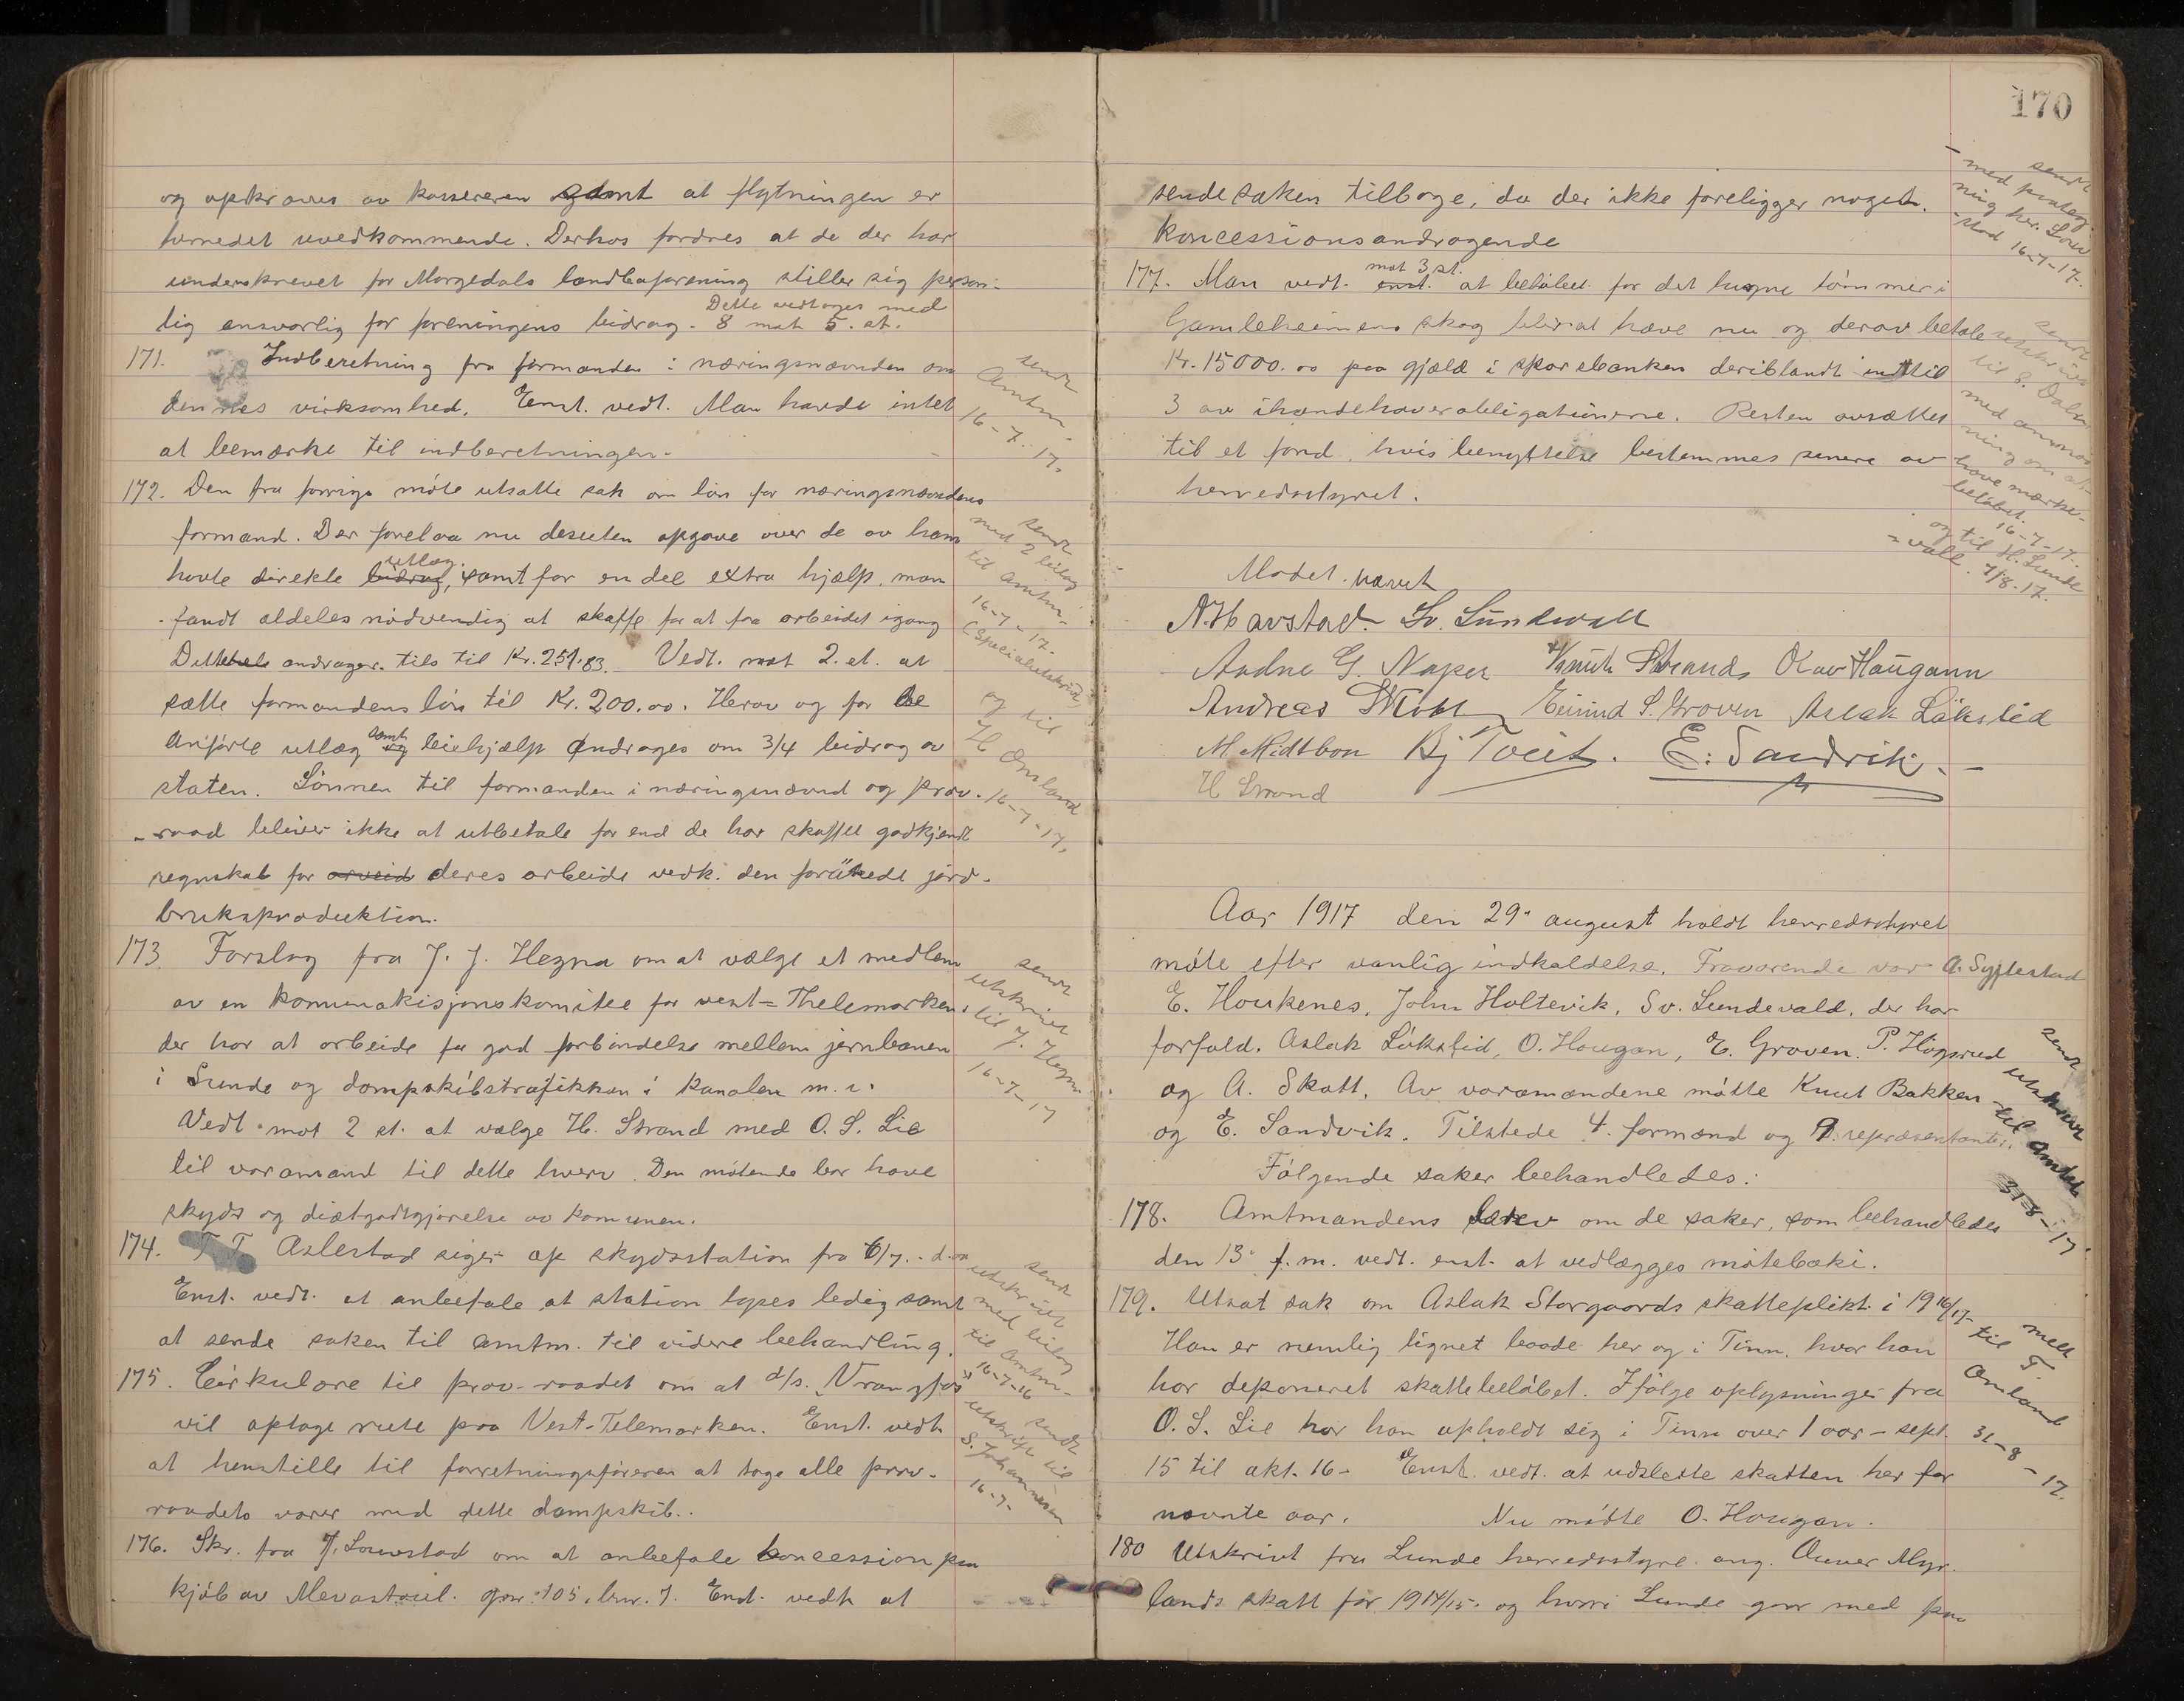 og opkræves av kassereren samt at flytningen er
herredet uvedkommende. Derhos fordres at de der har
underskrevet for Morgedals landboforening stiller sig person-
lig ansvarlig for foreningens bidrag. Dette vedtages med
8 mot 5. st.
171. Indberetning fra formanden i næringsnævnden om
dennes virksomhed. Enst. vedt. Man havde intet
at bemærke til indberetningen.
sendt
Amtm.
16-7-17.
172. Den fra forrige møte utsatte sak om løn for næringsnævndens
formand. Der forelaa nu desuten opgave over de av ham
havte direkte bidrag, utlæg samt for en del extra hjælp, man
fandt aldeles nødvendig at skaffe for at faa arbeidet igang
andrager til Kr. 251.83. Vedt. mot 2. st. at
sætte formandens løn til Kr. 200.00. Herav og for de
anførte utlæg og samt leiehjælp andrages om 3/4 bidrag av
staten. Lønnen til formanden i næringsnævnd og prov.-
raad bliver ikke at utbetale før end de har skaffet godkjendt
regnskab for arveid deres arbeide vedk. den forøkede jord-
bruksproduktion.
sendt
med 2 bilag
til Amtm.
16-7-17.
(Specialutskrift)
og til
H Omland
16-7-17.
173. Forslag fra J. J. Hegna om at vælge et medlem
av en komunikasjonskomitee for vest=Thelemarken,
der har at arbeide for god forbindelse mellem jernbanen
i Lunde og dampskibstrafikken i Kanalen m. v.
Vedt. mot 2 st. at vælge H. Strand med O. S. Lie
til varamand til dette hverv. Den møtende bør have
skyds og diætgodtgjørelse av komunen.
sendt
utskrivt
til J. Hegna
16-7-17
174. T T Aslestad siger op skydsstation fra 6/7. d.a
Enst. vedt. at anbefale at station lyses ledig samt
at sende saken til amtm. til videre behandling.
sendt
utskrivt
med bilag
til Amtm.
16-7-16
175. Cirkulære til prov-raadet om at d/s. "Vrangfos"
vil optage rute paa Vest-Telemarken. Enst. vedt.
at henstille til forretningsføreren at tage alle prov.-
raadets varer med dette dampskib.
sendt
utskrift til
S. Johannesen
16-7-
176. Skr. fra J. Lowstad om at anbefale koncession paa
kjøb av Mevastaul. gnr. 105, bnr. 7. Enst. vedt. at
170
sende saken tilbage, da der ikke foreligger noget.
koncessionsandragende
sendt
med protog-
ning her. Low
stad 16-7-17.
177. Man vedt. enst. mot 3 st. at beløbet for det hugne tømmer i
Gamleheimens skog blir at hæve nu og derav betale
Kr. 15000.00 paa gjæld i sparebanken deriblandt indtil
3 av ihændehaverobligationerne. Resten avsættes
til et fond, hvis benyttelse bestemmes senere av
herredsstyret.
sendt
utskrivt
til S. Dalen
med anmod-
ning om at
have
beløbet.
16-7-17.
og til H. Lunde
-vall. 7/8-17.
Mødet hævet
N. Havstad. Sv. Lundevall
Aadne G. Naper Knut Strands Olav Haugann
Andreas Skott Eivind S. Groven Aslak Løkslid
M. Midtbøn Bj Tveit. E. Sandvik.
H Strand
Aar 1917 den 29. august holdt herredsstyret
møte efter vanlig indkaldelse. Fraværende var A. Syftestad
E. Houkenes, John Holtevik, Sv. Lundevald, der har
forfald. Aslak Løkslid, O. Hougan, E. Groven. P. Høgsrud
og A. Skott. Av varamændene møtte Knut Bakken
og E. Sandvik. Tilstede 4. formænd og 9. repræsentanter.
Følgende saker behandledes:
178. Amtmandens brev om de saker, som behandledes
den 13. f.m. vedt. enst. at vedlægges møteboki.
sendt
utskrivt
til Amtet
31-8-17
179. Utsat sak om Aslak Storgaards skatteplikt i 1916/17-
Han er nemlig lignet baade her og i Tinn, hvor han
har deponeret skattebeløbet. Ifølge oplysninger fra
O. S. Lie har han opholdt sig i Tinn over 1 aar - sept.
15 til okt. 16- Enst. vedt. at udslette skatten her for
nævnte aar. Nu møtte O. Hougan.
melt
til T.
Omland
31-8-17.
180 Utskrivt fra Lunde herredsstyre ang. Aanver Myr-
lands skatt for 1914/15. og hvori Lunde gaar med paa